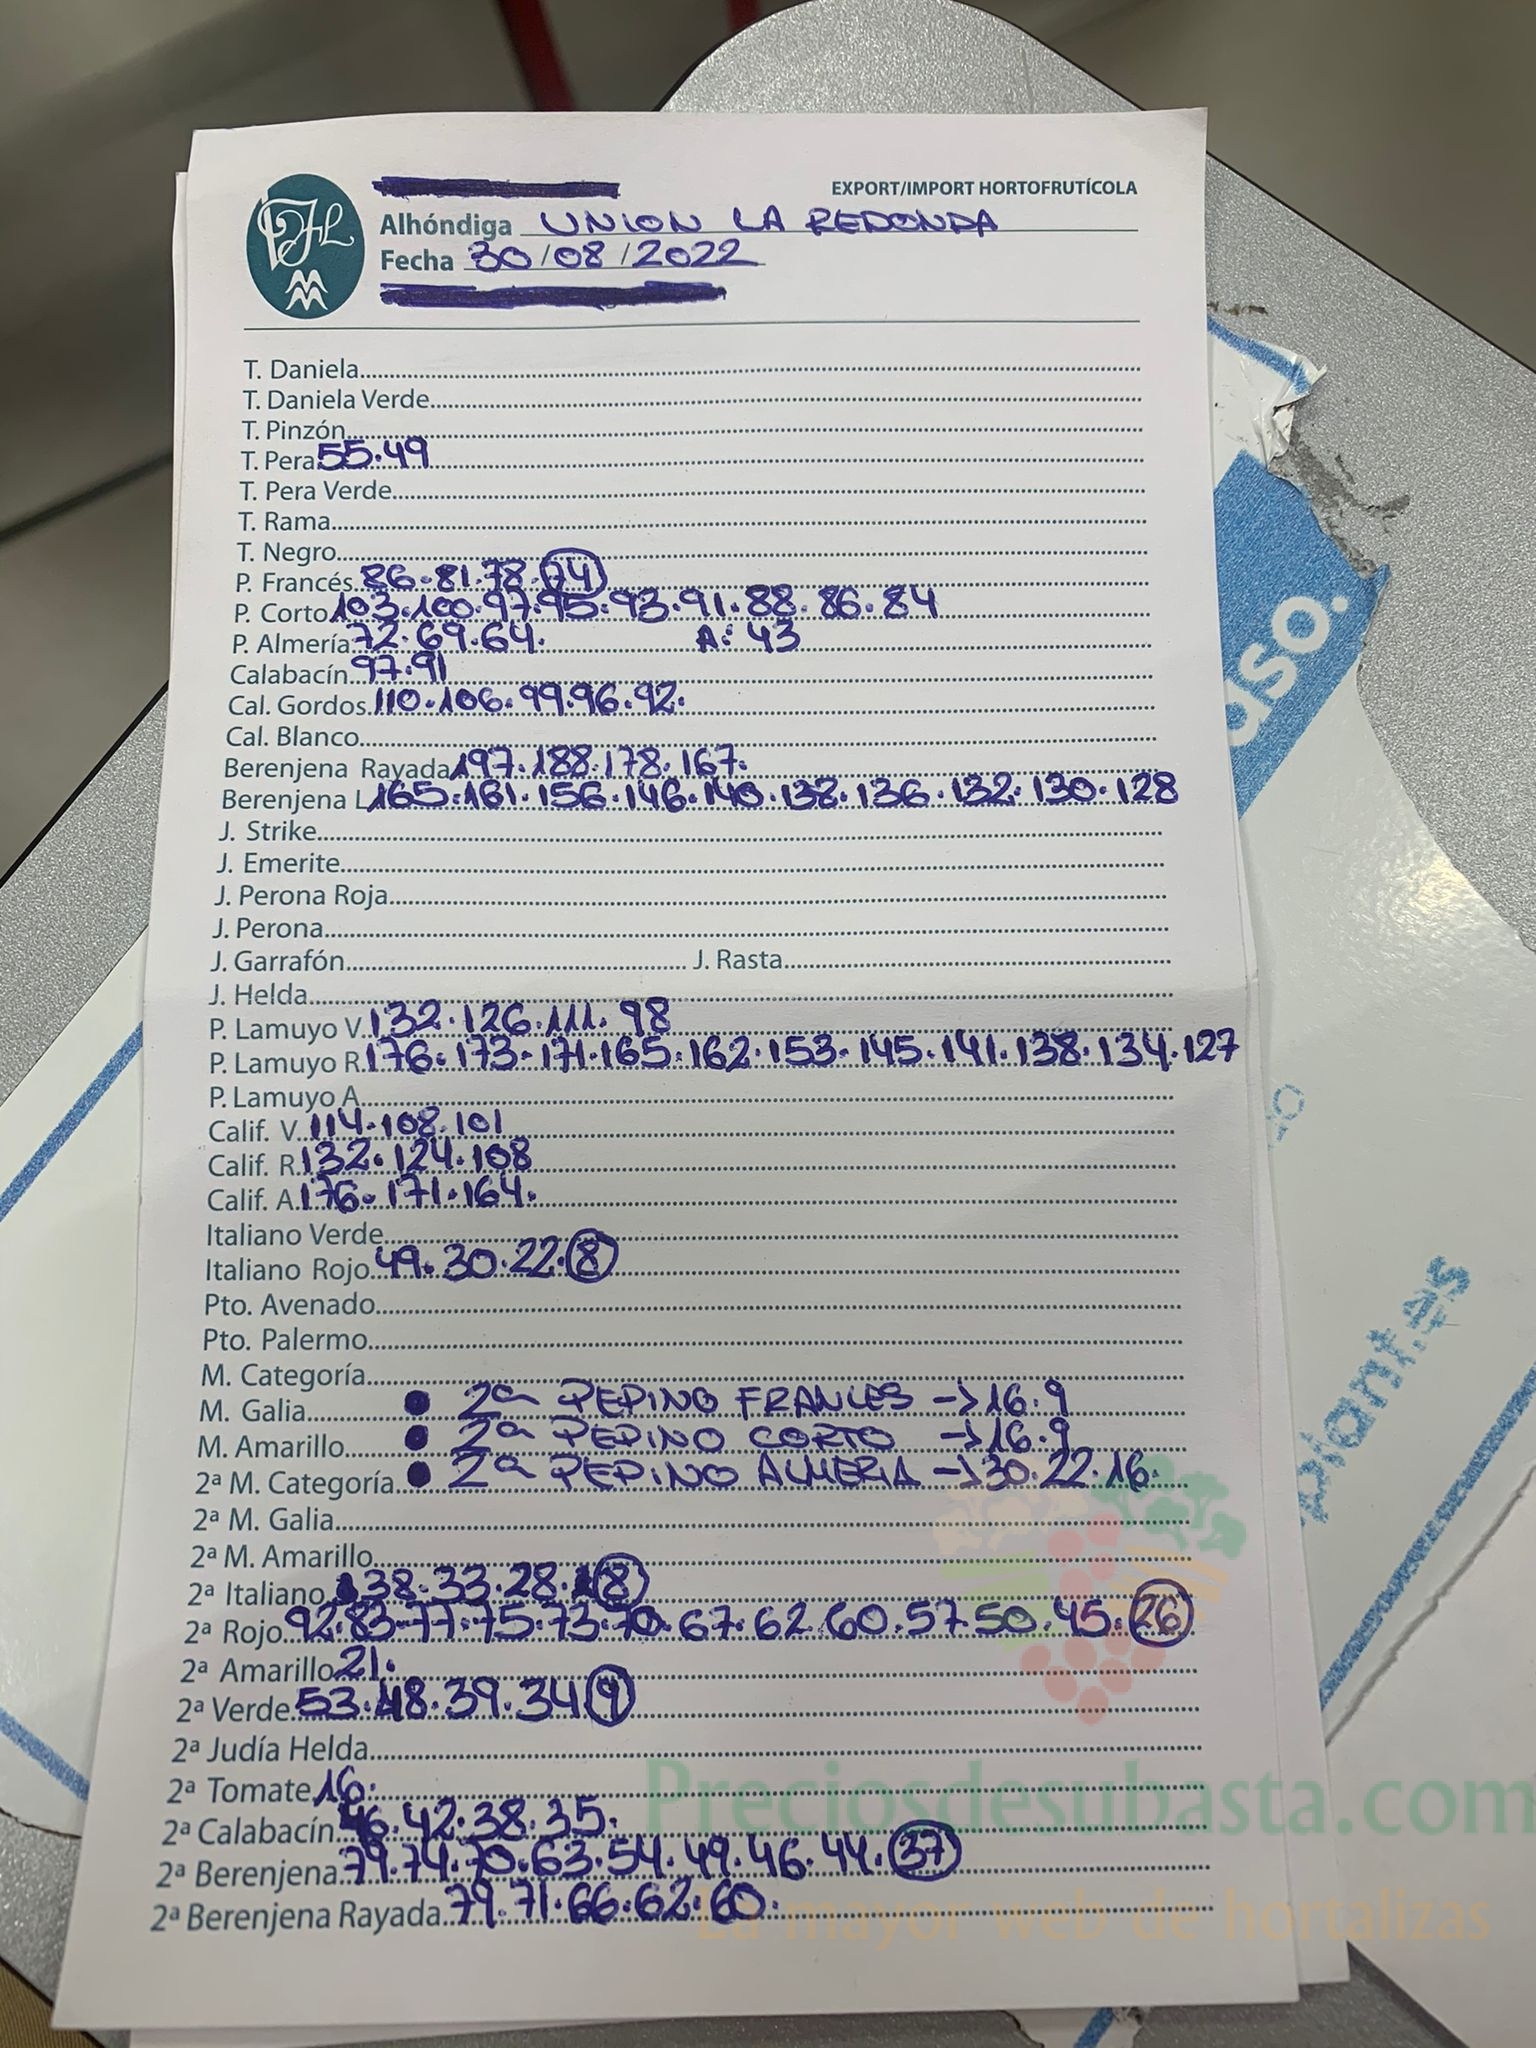 EXPORT/IMPORT HORTOFRUTÍCOLA
Alhóndiga UNION LA REDONDA
Fecha 30/08/2022
T. Daniela
T. Daniela Verde
T. Pinzón
T. Pera 55.49
T. Pera Verde
T. Rama
T. Negro
P. Francés 86.81.78.74
P. Corto 103.100.97.95.93.91.88.86.84
P. Almería 72.69.64. A: 43
Calabacín 97.91
Cal. Gordos 110.106.99.96.92.
Cal. Blanco
Berenjena Rayada 197.188.178.167.
Berenjena L 165.161.156.146.140.138.136.132.130.128
J. Strike
J. Emerite
J. Perona Roja
J. Perona
J. Garrafón J. Rasta
J. Helda
P. Lamuyo V. 132.126.111.98
P. Lamuyo R. 176.173.171.165.162.153.145.141.138.134.127
P. Lamuyo A
Calif. V. 114.108.101
Calif. R. 132.124.108
Calif. A. 176.171.164.
Italiano Verde
Italiano Rojo 49.30.22.8
Pto. Avenado
Pto. Palermo
M. Categoría
M. Galia • 2ª PEPINO FRANCES -> 16.9
M. Amarillo • 2ª PEPINO CORTO -> 16.9
2ª M. Categoría • 2ª PEPINO ALMERIA -> 30.22.16.
2ª M. Galia
2ª M. Amarillo
2ª Italiano 38.33.28. 8
2ª Rojo 92.83.77.75.73.70.67.62.60.57.50.45.26
2ª Amarillo 21.
2ª Verde 53.48.39.34 9
2ª Judía Helda
2ª Tomate 16.
2ª Calabacín 46.42.38.35.
2ª Berenjena 79.74.70.63.54.49.46.44.37
2ª Berenjena Rayada 79.71.66.62.60.
Preciosdesubasta.com
La mayor web de hortalizas
aso.